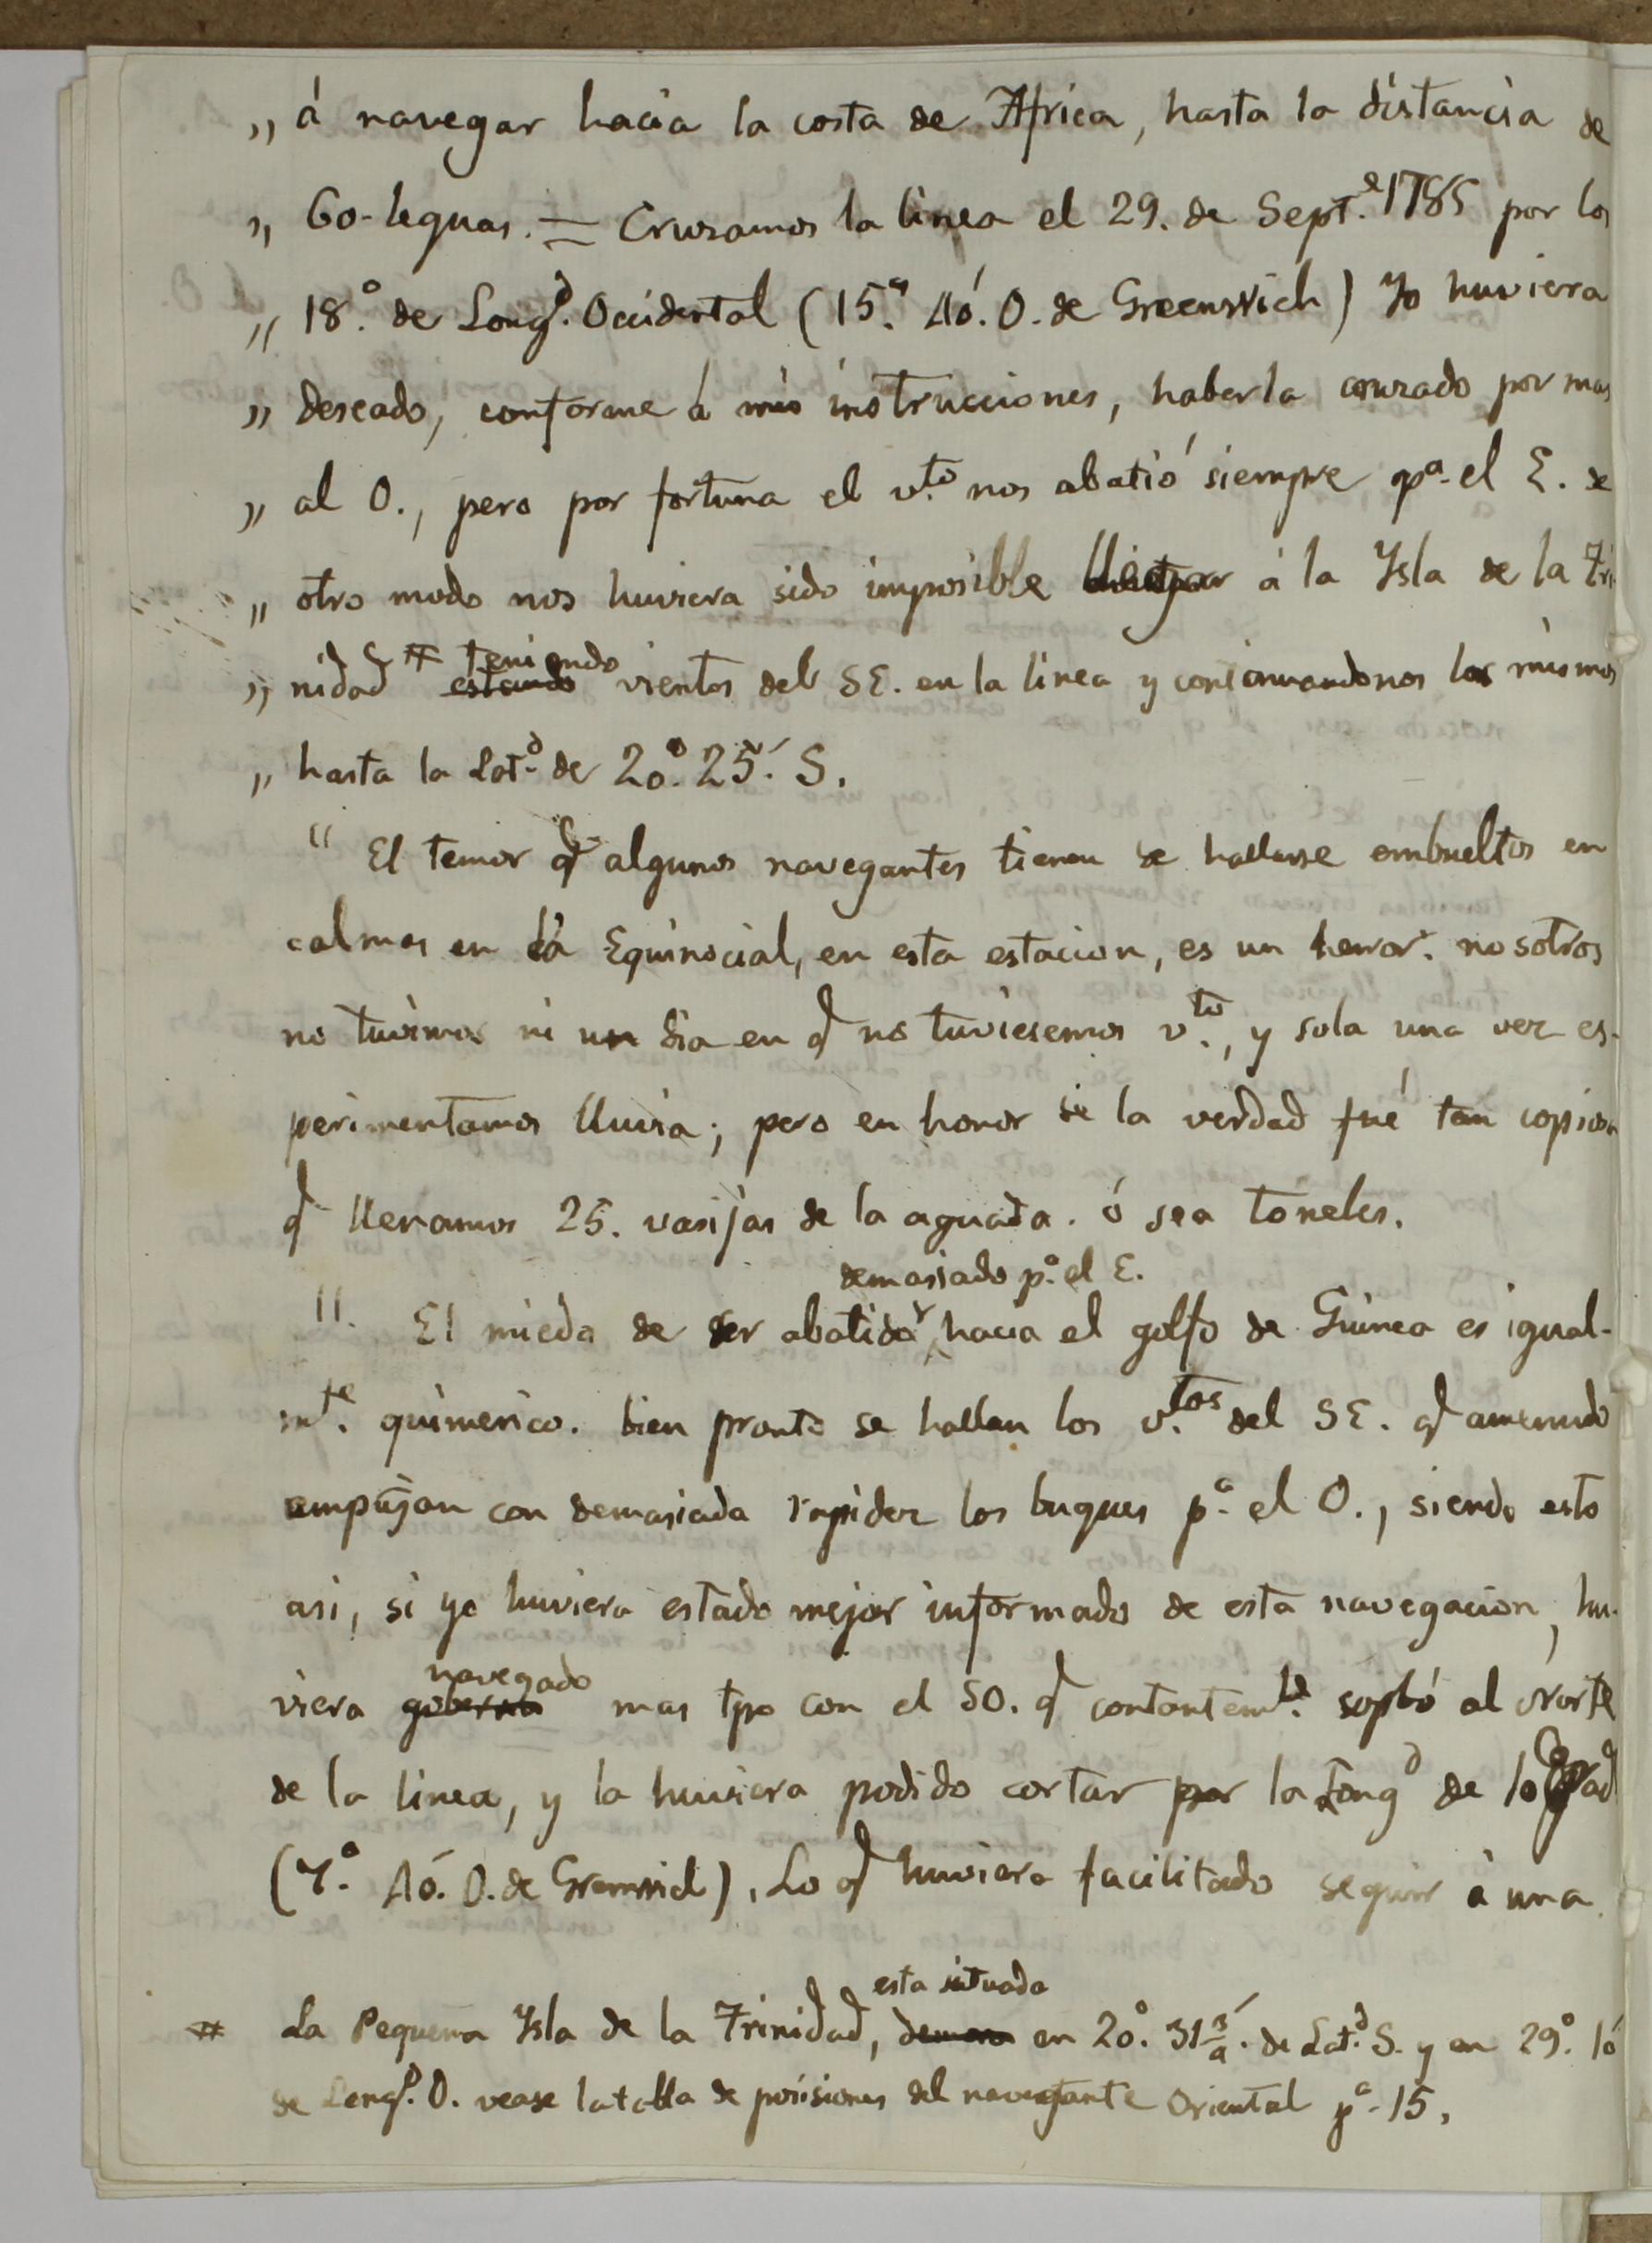 „ á navegar hacia la costa de Africa, hasta la distancia de
„ 60-leguas. = Cruzamos la linea el 29. de Sept.e 1785 por los
„ 18.° de Long.d Occidental (15.° 40'. O. de Greenwich) Yo huviera
„ deseado, conforme á mis instrucciones, haberla cruzado por mas
„ al O., pero por fortuna el v.to nos abatió siempre p.a el E. de
„ otro modo nos huviera sido imposible llegar á la Ysla de la Tri
„ nidad # estando teniendo vientos del SE. en la linea y continuandonos los mismos
„ hasta la Lat.d de 20.° 25'. S.
" El temor q algunos navegantes tienen de hallarse embueltos en
calmas en la Equinocial, en esta estacion, es un herror. nosotros
no tuvimos ni un dia en q no tuviesemos v.to, y sola una vez es-
perimentamos lluvia; pero en honor de la verdad fué tan copiosa
q llenamos 25. vasijas de la aguada. ó sea toneles.
demasiado p.a el E.
" El miedo de ser abatido y hacia el golfo de Guinea es igual-
m.te quimerico. bien pronto se hallan los v.tos del SE. q amenudo
empujan con demasiada rapidez los buques p.a el O., siendo esto
asi, si yo huviera estado mejor informado de esta navegacion, hu-
navegado
viera mas tpo con el SO. q contantem.te sopló al Norte
de la linea, y la huviera podido cortar por la Long.d de 10 Grad
(7.° 40'. O. de Greenwich). Lo q huviera facilitado seguir á una
esta situada
# La Pequena Ysla de la Trinidad, en 20.° 31 de Lat.d S. y en 29.° 10'
de Long.d O. vease la tabla de posisiones del navegante Oriental p.a 15.